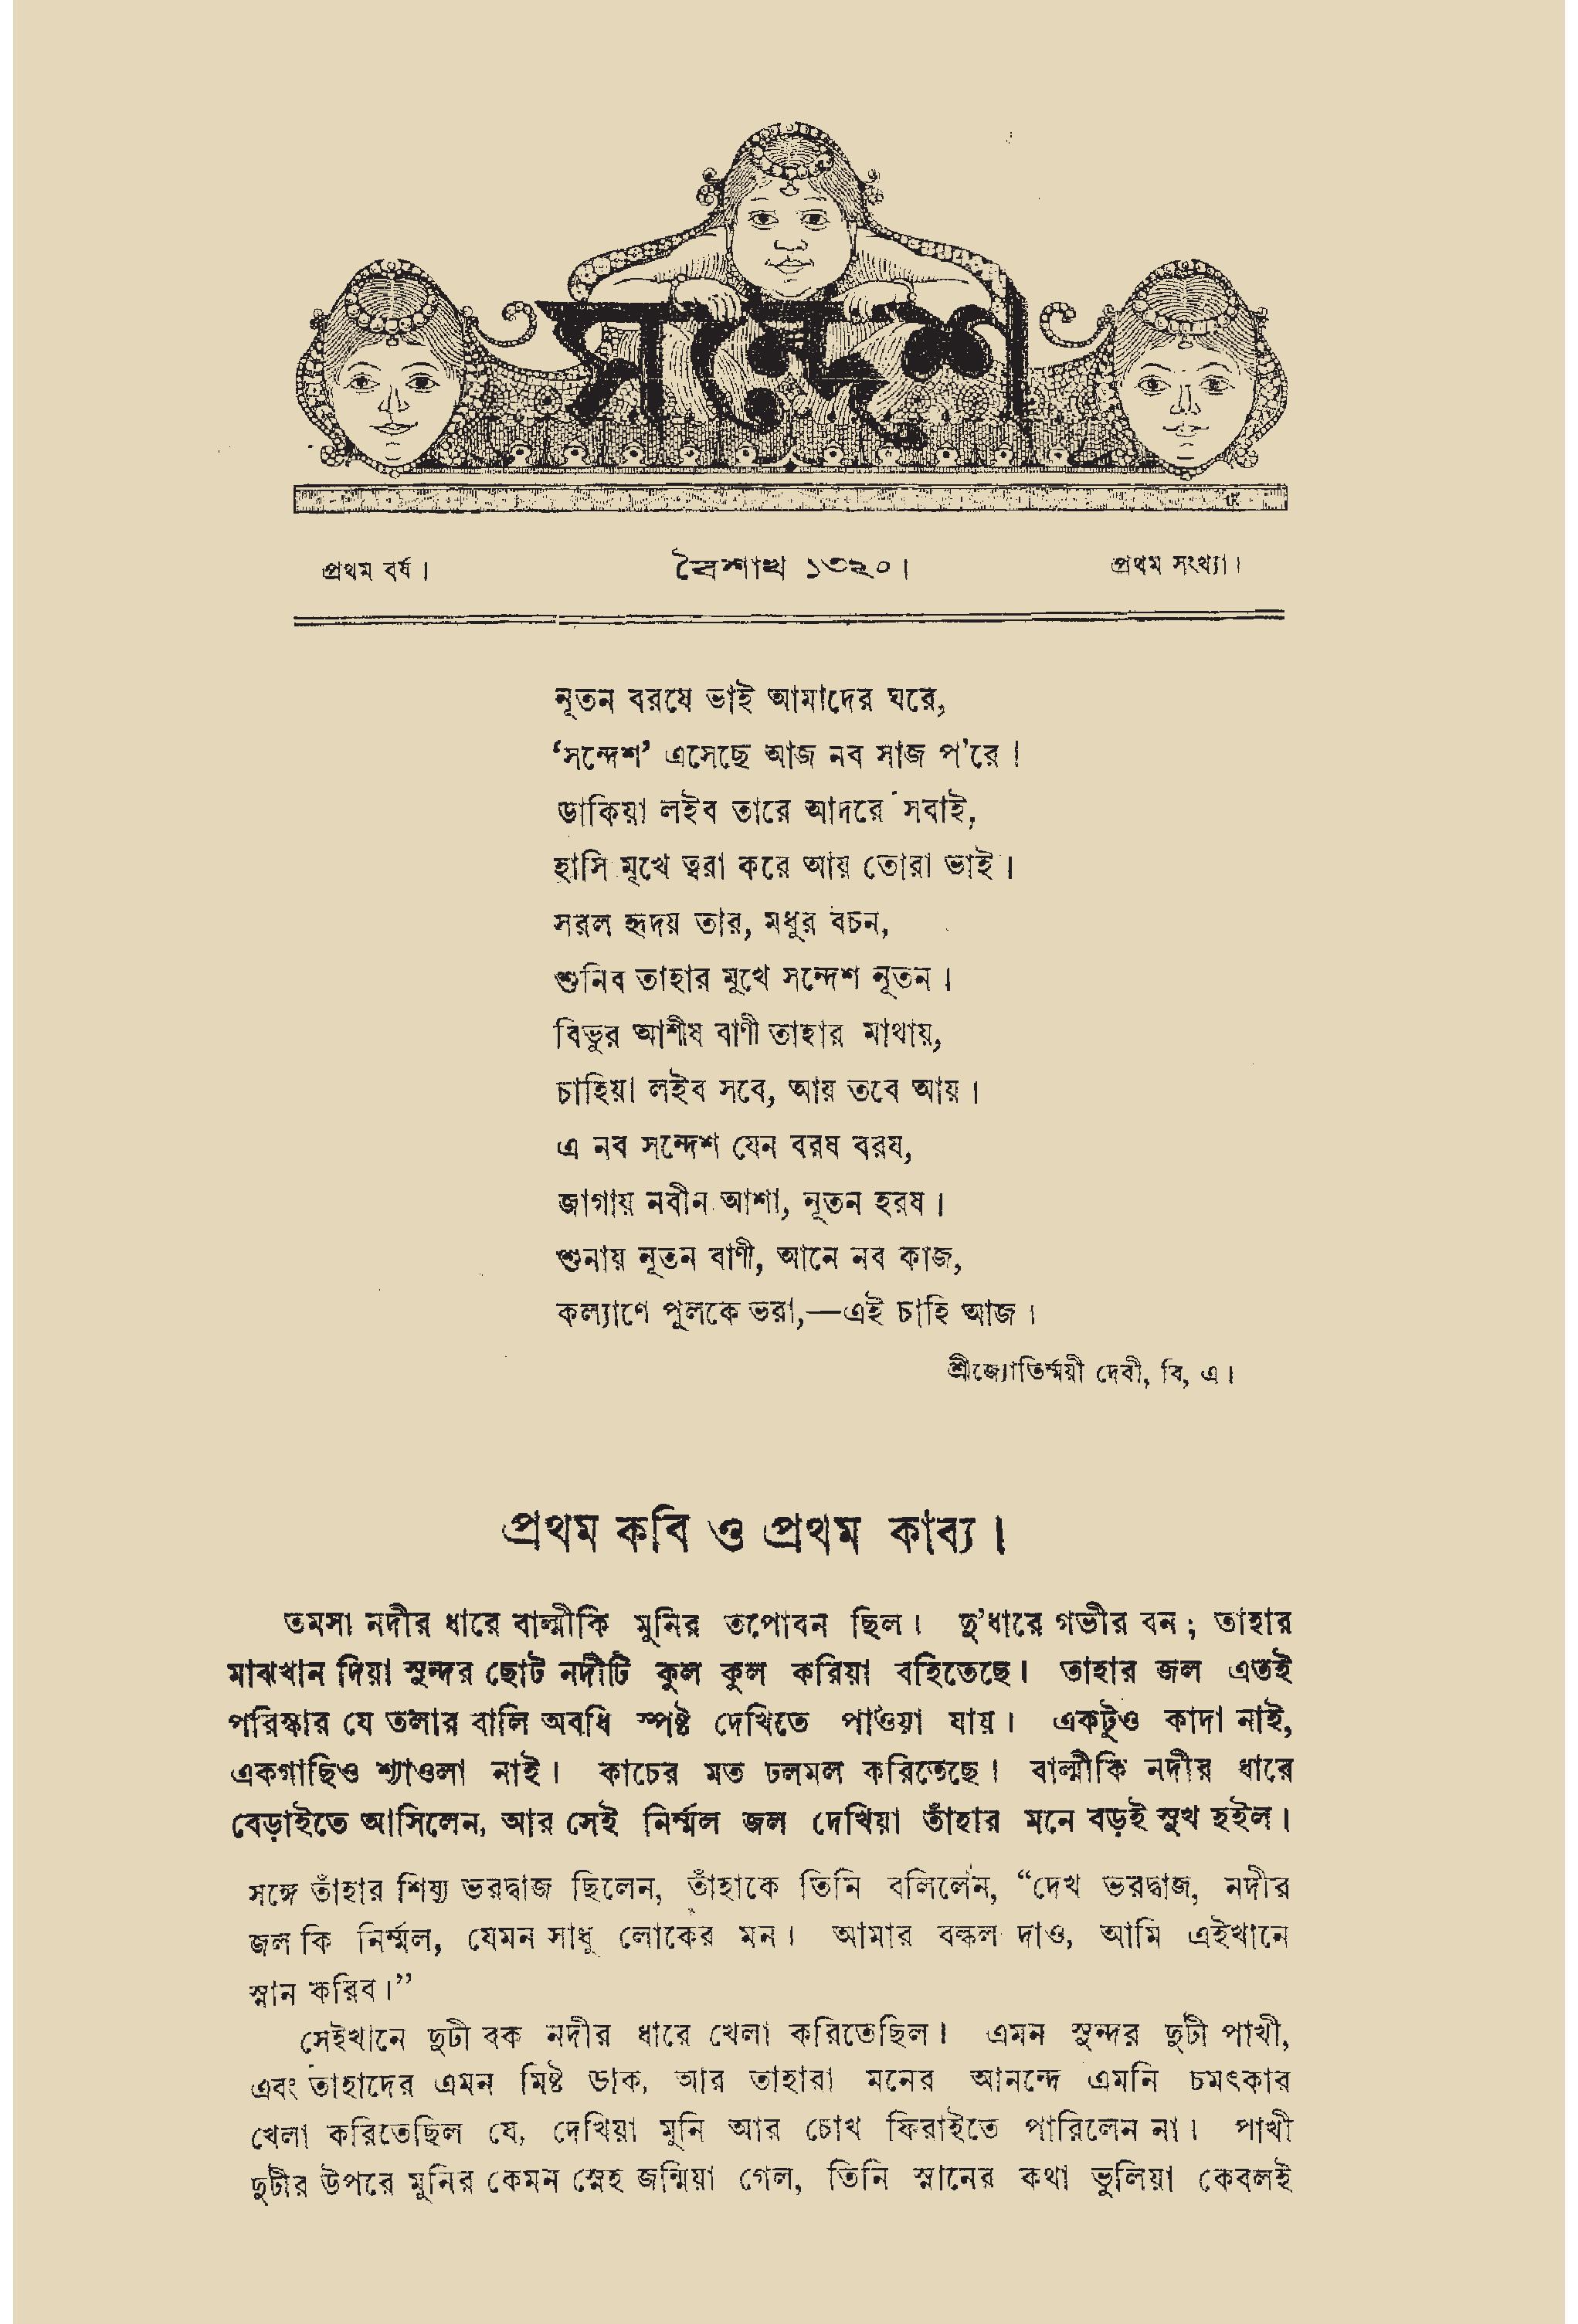 সন্দেশ
প্রথম বর্ষ।
বৈশাখ ১৩২০।
প্রথম সংখ্যা।
নূতন বরষে ভাই আমাদের ঘরে,
‘সন্দেশ’ এসেছে আজ নব সাজ প’রে!
ডাকিয়া লইব তারে আদরে সবাই,
হাসি মুখে ত্বরা করে আয় তোরা ভাই।
সরল হৃদয় তার, মধুর বচন,
শুনিব তাহার মুখে সন্দেশ নূতন।
বিভুর আশীষ বাণী তাহার মাথায়,
চাহিয়া লইব সবে, আয় তবে আয়।
এ নব সন্দেশ যেন বরষ বরষ,
জাগায় নবীন আশা, নূতন হরষ।
শুনায় নূতন বাণী, আনে নব কাজ,
কল্যাণে পুলকে ভরা,—এই চাহি আজ।
শ্রীজ্যোতির্ম্ময়ী দেবী, বি, এ।
প্রথম কবি ও প্রথম কাব্য।
তমসা নদীর ধারে বাল্মীকি মুনির তপোবন ছিল। দু’ধারে গভীর বন; তাহার
মাঝখান দিয়া সুন্দর ছোট নদীটি কুল কুল করিয়া বহিতেছে। তাহার জল এতই
পরিস্কার যে তলার বালি অবধি স্পষ্ট দেখিতে পাওয়া যায়। একটুও কাদা নাই,
একগাছিও শ্যাওলা নাই। কাচের মত ঢলমল করিতেছে। বাল্মীকি নদীর ধারে
বেড়াইতে আসিলেন, আর সেই নির্ম্মল জল দেখিয়া তাঁহার মনে বড়ই সুখ হইল।
সঙ্গে তাঁহার শিষ্য ভরদ্বাজ ছিলেন, তাঁহাকে তিনি বলিলেন, “দেখ ভরদ্বাজ, নদীর
জল কি নির্ম্মল, যেমন সাধু লোকের মন। আমার বল্কল দাও, আমি এইখানে
স্নান করিব।”
সেইখানে দুটী বক নদীর ধারে খেলা করিতেছিল। এমন সুন্দর দুটী পাখী,
এবং তাহাদের এমন মিষ্ট ডাক, আর তাহারা মনের আনন্দে এমনি চমৎকার
খেলা করিতেছিল যে, দেখিয়া মুনি আর চোখ ফিরাইতে পারিলেন না। পাখী
দুটীর উপরে মুনির কেমন স্নেহ জন্মিয়া গেল, তিনি স্নানের কথা ভুলিয়া কেবলই